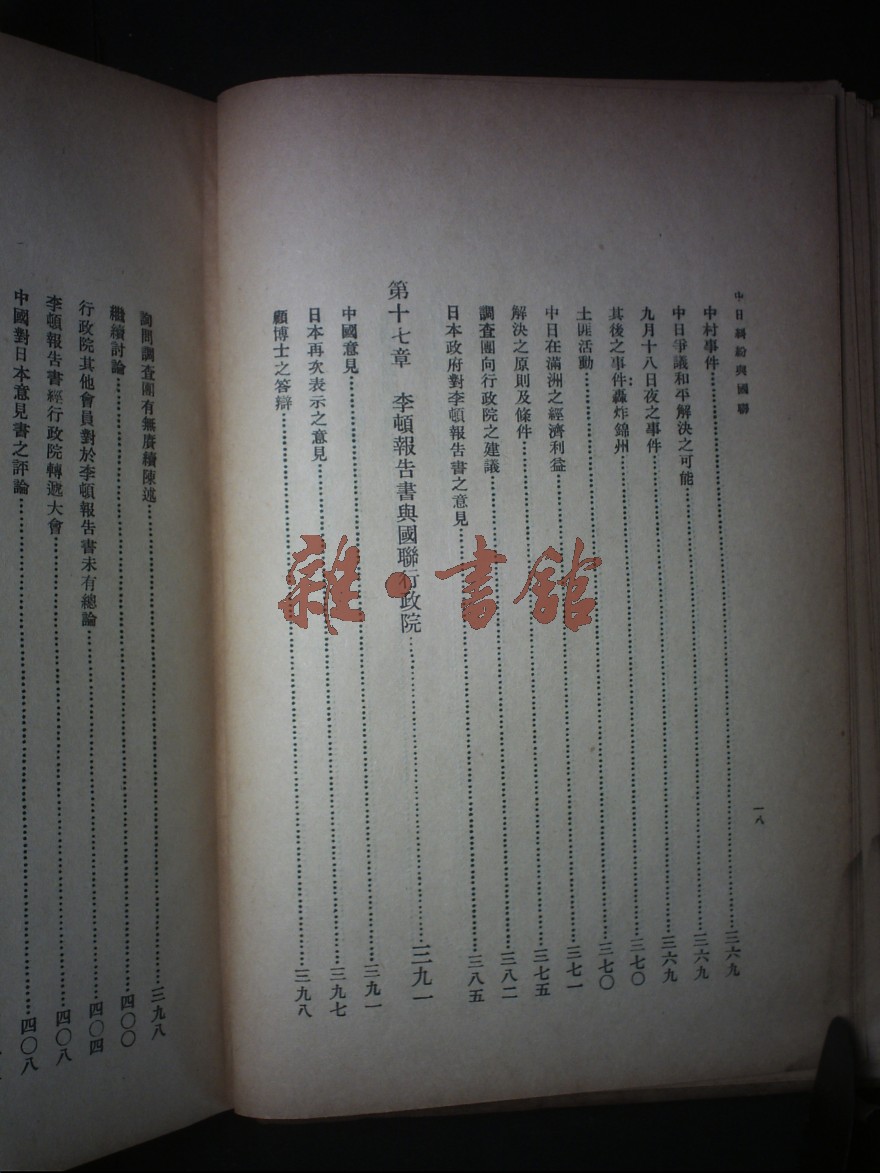 中日糾紛與國聯 一八
中村事件……三六九
中日爭議和平解決之可能……三六九
九月十八日夜之事件……三六九
其後之事件轟炸錦州……三七〇
土匪活動……三七〇
中日在滿洲之經濟利益……三七一
解決之原則及條件……三七五
調查團向行政院之建議……三八二
日本政府對李頓報告書之意見……三八五
第十七章 李頓報告書與國聯行政院……三九一
中國意見……三九一
日本再次表示之意見……三九七
顧博士之答辯……三九八
詢問調查團有無賡續陳述……三九八
繼續討論……四〇〇
行政院其他會員對於李頓報告書未有總論……四〇四
李頓報告書經行政院轉遞大會……四〇八
中國對日本意見書之評論……四〇八
雜·書館